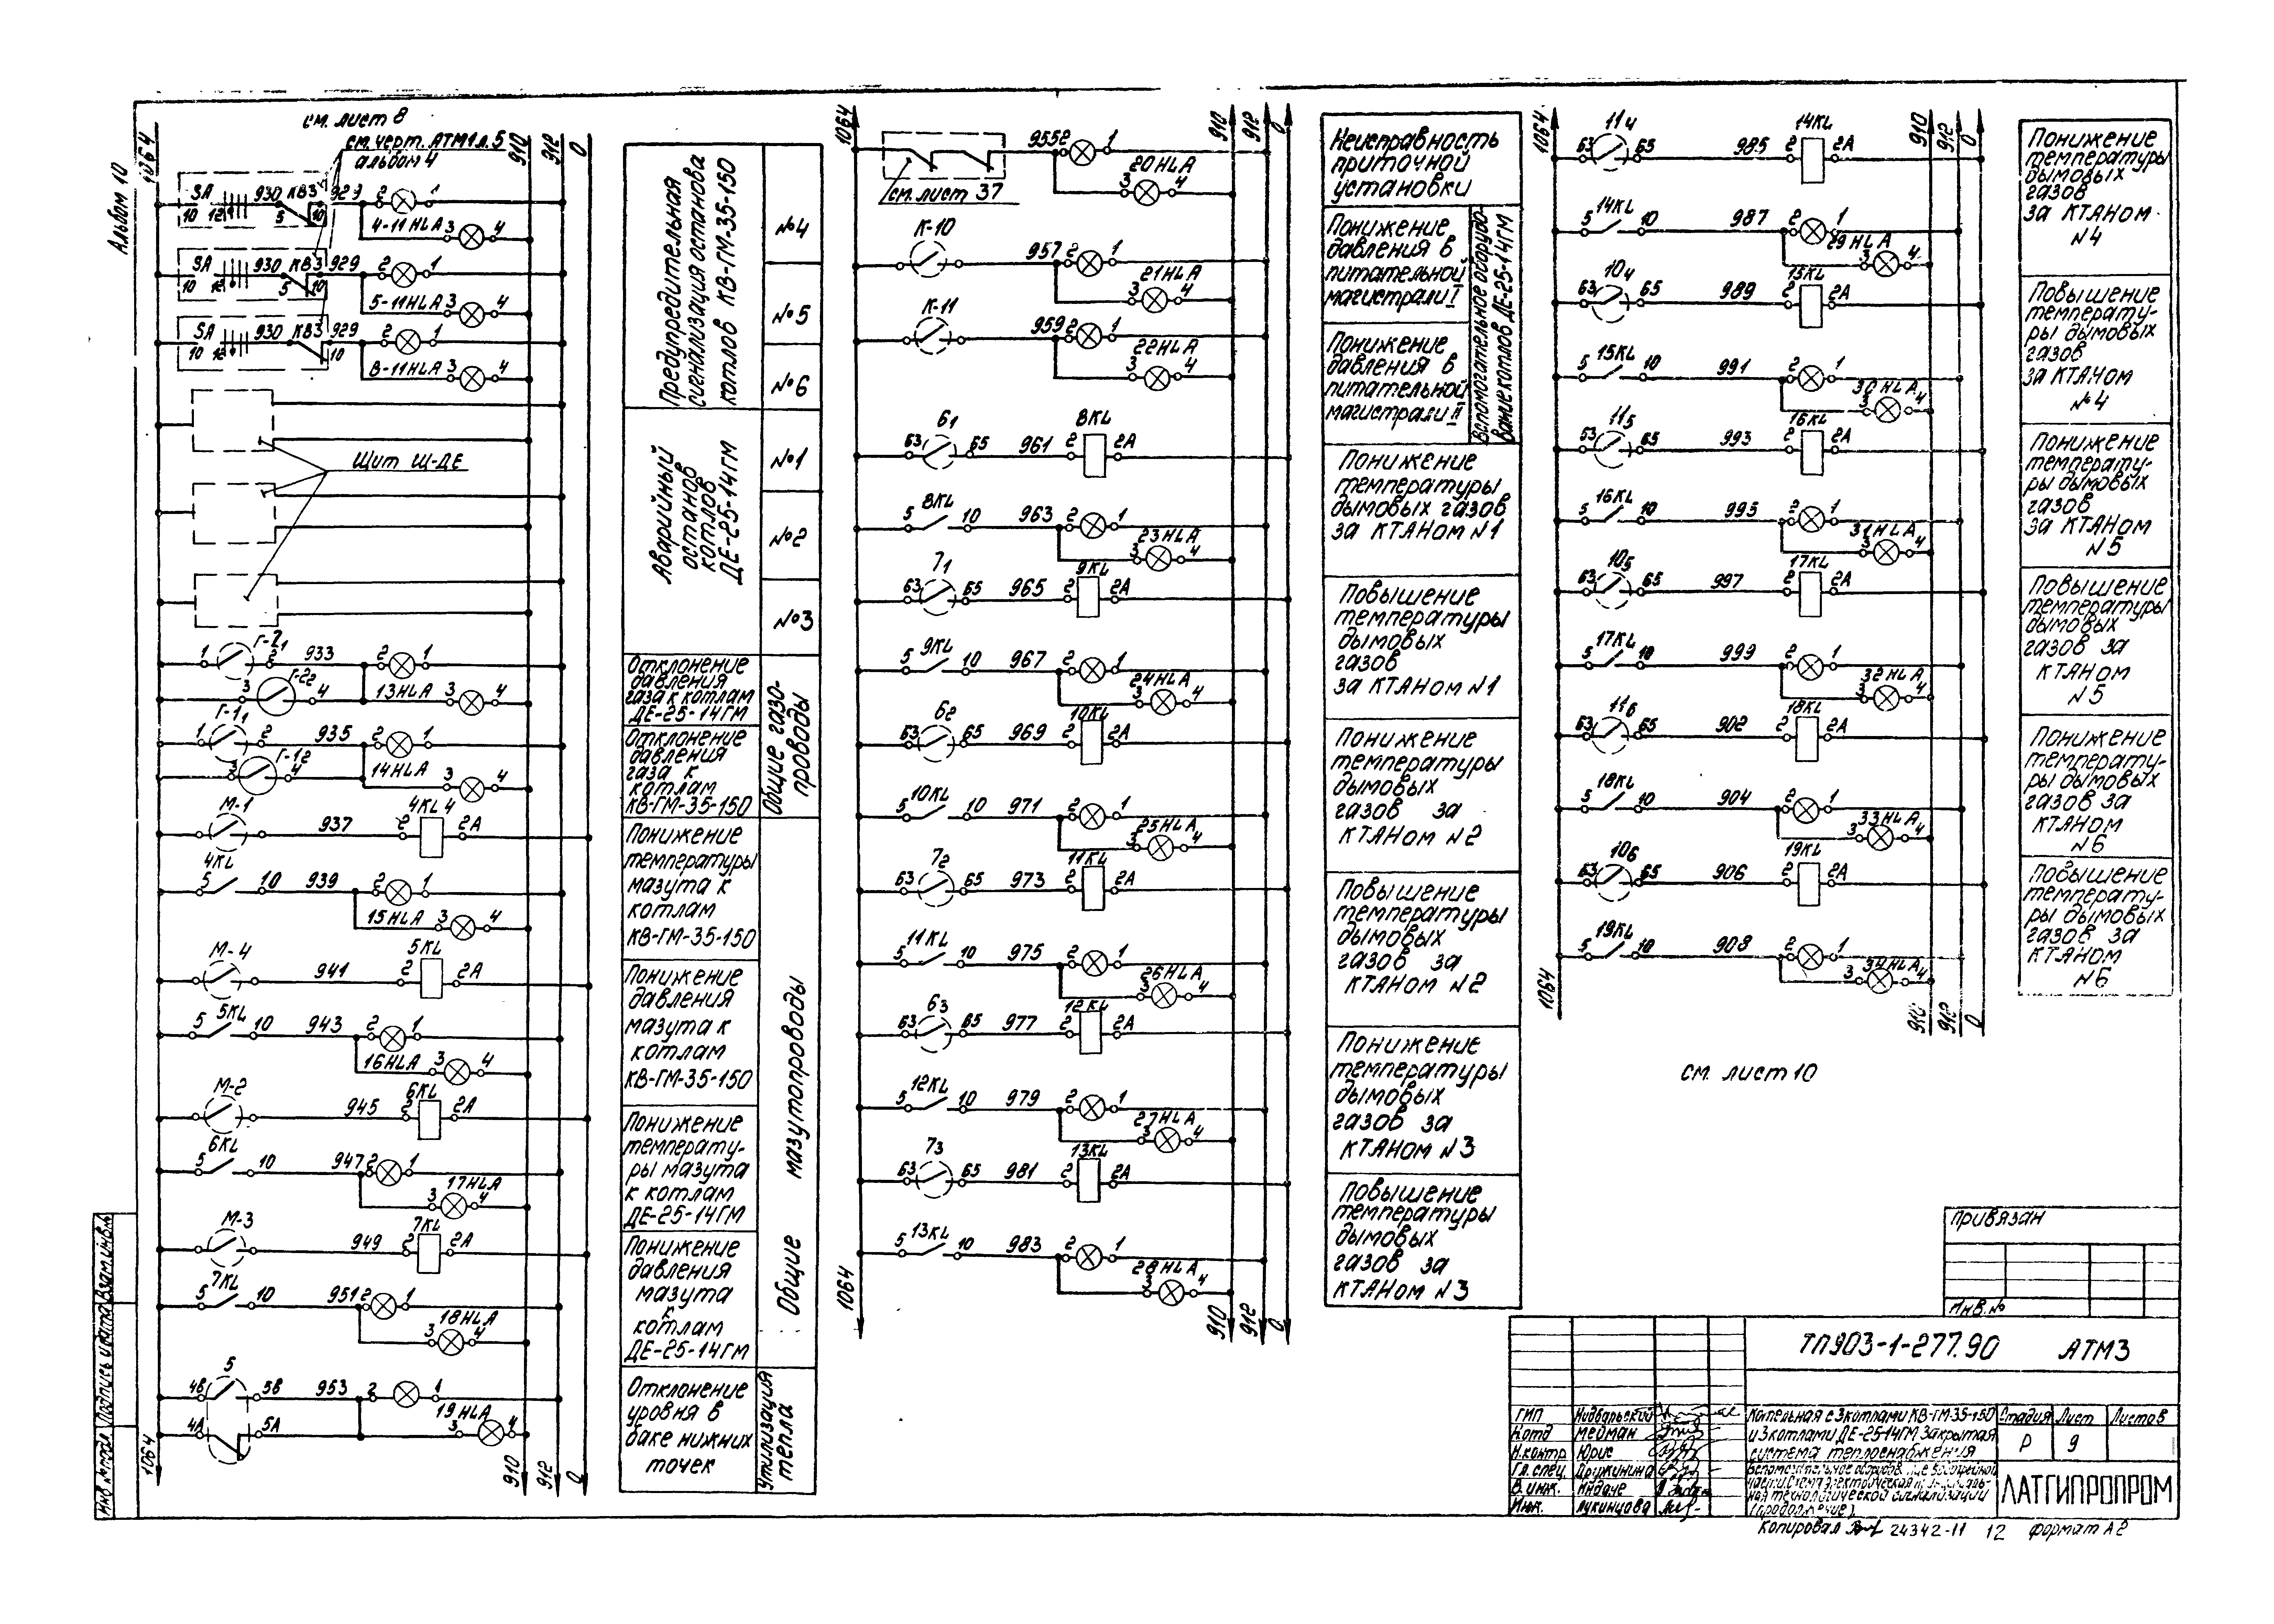 Альбом 10
см. лист 8
см. черт. АТМ1 л.5
альбом 4
1064
910
912
0
SA 930 КВ3 929 2 1
10 12 5 10
4-11HLA 3 4
SA 930 КВ3 929 2 1
10 12 5 10
5-11HLA 3 4
SA 930 КВ3 929 2 1
10 12 10
В-11HLA 3 4
Щит Щ-ДЕ
1 Г-21 2 933 2 1
3 Г-22 4 13HLA 3 4
Г-11
1 2 935 2 1
3 Г-12 4 14HLA 3 4
М-1 4KL 4
937 2 2А
4KL
5 10 939 2 1
15HLA 3 4
М-4 5KL
941 2 2А
5KL
5 10 943 2 1
16HLA 3 4
М-2 6KL
945 2 2А
6KL
5 10 947 2 1
17HLA
3 4
М-3 7KL
949 2 2А
7KL
5 10 951 2 1
18HLA
3 4
5
4В 5В 953 2 1
4А 5А 19HLA 3 4
1064
910
912
0
Предупредительная
сигнализация останова
котлов КВ-ГМ-35-150
№4
№5
№6
Аварийный
останов
котлов
ДЕ-25-14ГМ
№1
№2
№3
Отклонение
давления
газа к котлам
ДЕ-25-14ГМ
Отклонение
давления
газа к
котлам
КВ-ГМ-35-150
Общие газо-
проводы
Понижение
температуры
мазута к
котлам
КВ-ГМ-35-150
Понижение
давления
мазута к
котлам
КВ-ГМ-35-150
Понижение
температу-
ры мазута
к котлам
ДЕ-25-14ГМ
Понижение
давления
мазута
к
котлам
ДЕ-25-14ГМ
Общие мазутопроводы
Отклонение
уровня в
баке нижних
точек
Утилизация
тепла
1064
910
912
0
955 2 1
20HLA
3 4
см. лист 37
К-10
957 2 1
21HLA
3 4
К-11
959 2 1
22HLA
3 4
61 8KL
63 65 961 2 2А
8KL
5 10 963 2 1
23HLA
3 4
71 9KL
63 65 965 2 2А
9KL
5 10 967 2 1
24HLA
3 4
62 10KL
63 65 969 2 2А
10KL
5 10 971 2 1
25HLA
3 4
72 11KL
63 65 973 2 2А
11KL
5 10 975 2 1
26HLA
3 4
63 12KL
63 65 977 2 2А
12KL
5 10 979 2 1
27HLA
3 4
73 13KL
63 65 981 2 2А
13KL
5 10 983 2 1
28HLA
3 4
1064
910
912
0
Неисправность
приточной
установки
Понижение
давления в
питательной
магистрали I
Понижение
давления в
питательной
магистрали II
Вспомогательное оборудо-
вание котлов ДЕ-25-14ГМ
Понижение
температуры
дымовых газов
за КТАНом N1
Повышение
температуры
дымовых
газов
за КТАНом N1
Понижение
температуры
дымовых
газов за
КТАНом N2
Повышение
температуры
дымовых
газов за
КТАНом N2
Понижение
температуры
дымовых
газов за
КТАНом N3
Повышение
температуры
дымовых
газов за
КТАНом N3
1064
910
912
0
114 14KL
63 65 985 2 2А
14KL
5 10 987 2 1
29HLA
3 4
104 15KL
63 65 989 2 2А
15KL
5 10 991 2 1
30HLA
3 4
115 16KL
63 65 993 2 2А
16KL
5 10 995 2 1
31HLA
3 4
105 17KL
63 65 997 2 2А
17KL
5 10 999 2 1
32HLA
3 4
116 18KL
63 65 902 2 2А
18KL
5 10 904 2 1
33HLA
3 4
106 19KL
63 65 906 2 2А
19KL
5 10 908 2 1
34HLA
3 4
1064
910
912
0
см. лист 10
Понижение
температуры
дымовых
газов
за КТАНом
N4
Повышение
температу-
ры дымовых
газов
за КТАНом
№4
Понижение
температу-
ры дымовых
газов
за КТАНом
N5
Повышение
температуры
дымовых
газов за
КТАНом
N5
Понижение
температу-
ры дымовых
газов за
КТАНом
N6
Повышение
температу-
ры дымовых
газов за
КТАНом
N6
Привязан
Инв.№
ТП903-1-277.90 АТМ3
ГИП
Н.отд Мейман
Н.контр Юрис
Гл. спец. Дружинина
В. инж.
Инж. Лукинцова
Котельная с 3 котлами КВ-ГМ-35-150
и 3 котлами ДЕ-25-14ГМ Закрытая
система теплоснабжения
Стадия Лист Листов
Р 9
технологической сигнализации
(продолжение)
ЛАТГИПРОПРОМ
Копировал 24342-11 12 формат А2
Инв.№ подл. Подпись и дата Взам.инв.№